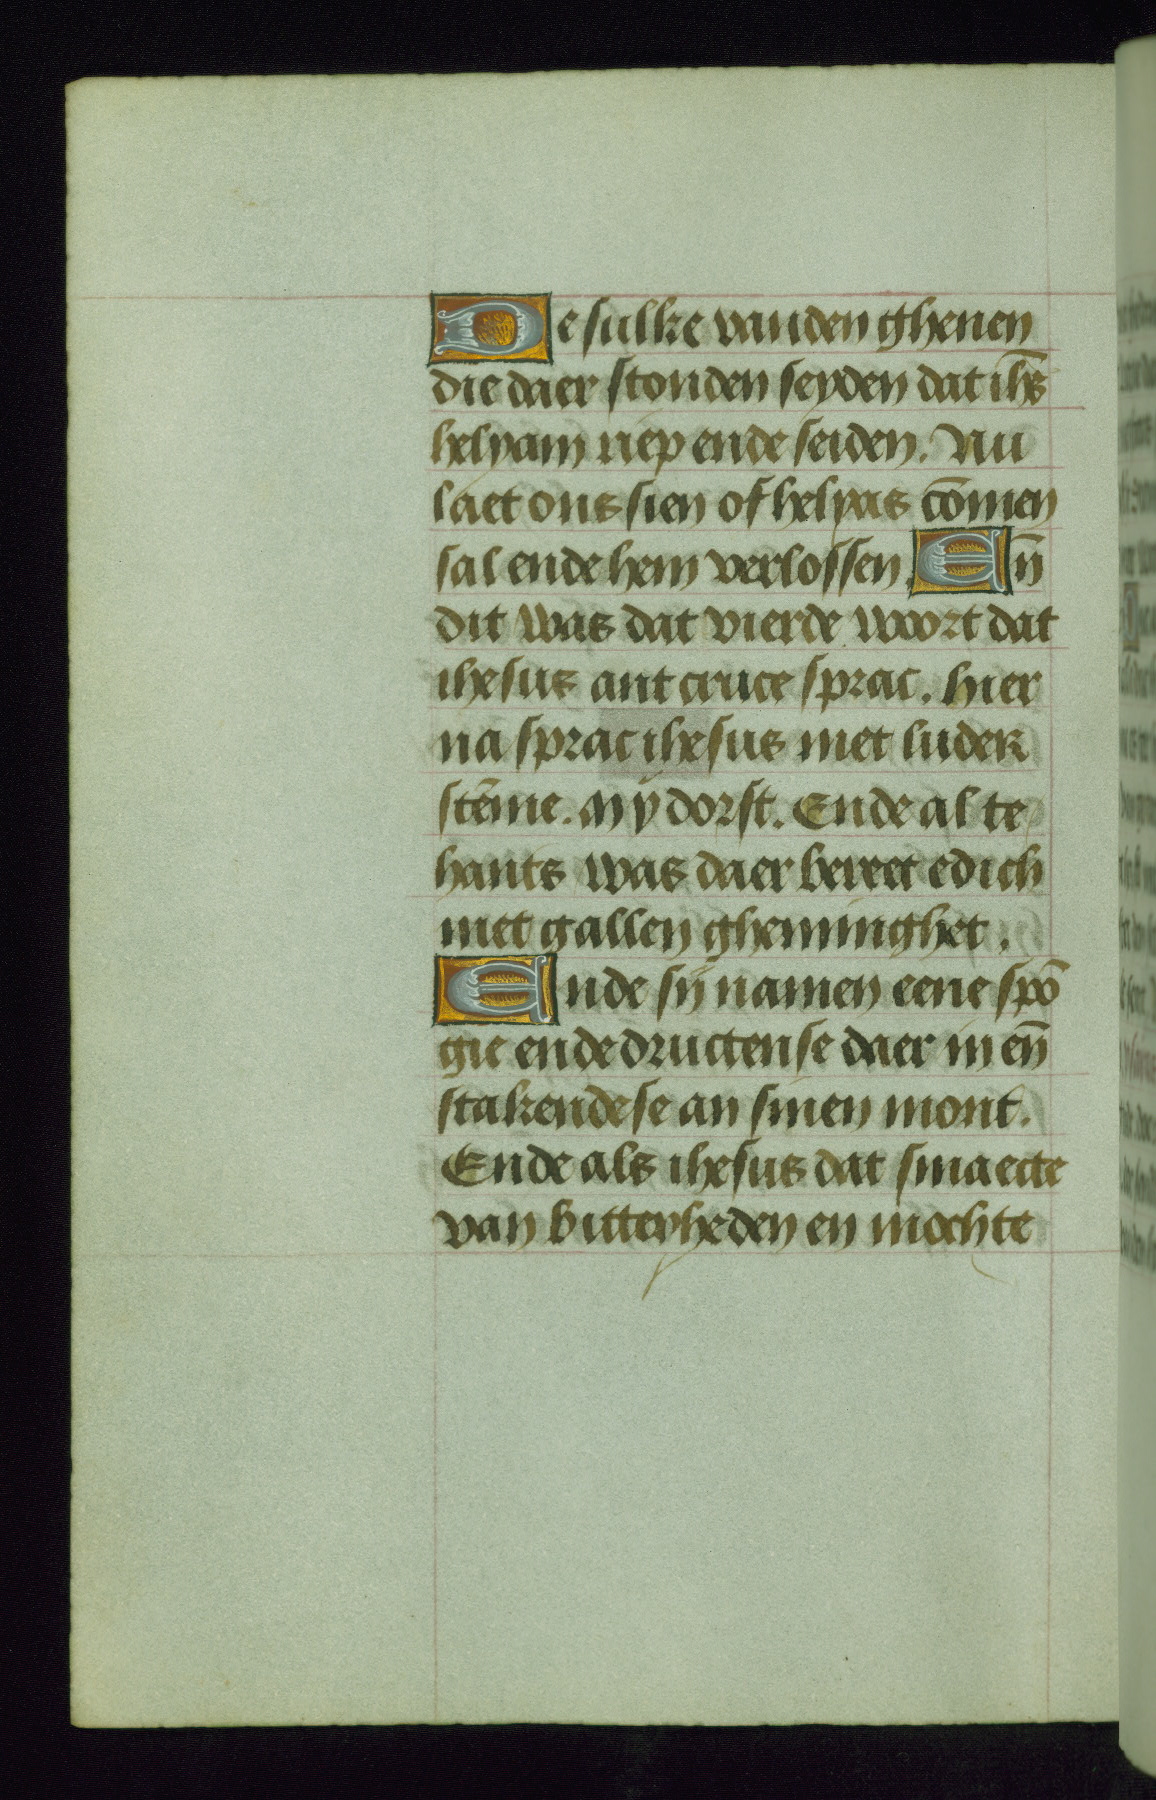 De sulke vanden ghenen
die daer stonden seyden dat ih̄s
helyam riep ende seiden. Nu
laet ons sien of helyas cōmen
sal ende hem verlossen. En̄
dit was dat vierde woort dat
ihesus ant cruce sprac. hier
na sprac ihesus met luder
stēme. My dorst. Ende al te
hants was daer bereet edich
met gallen gheminghet.
Ende sij namen eene spō
gie ende dructense daer in en̄
stakendese an sinen mont.
Ende als ihesus dat smaecte
van bitterheden en mochte